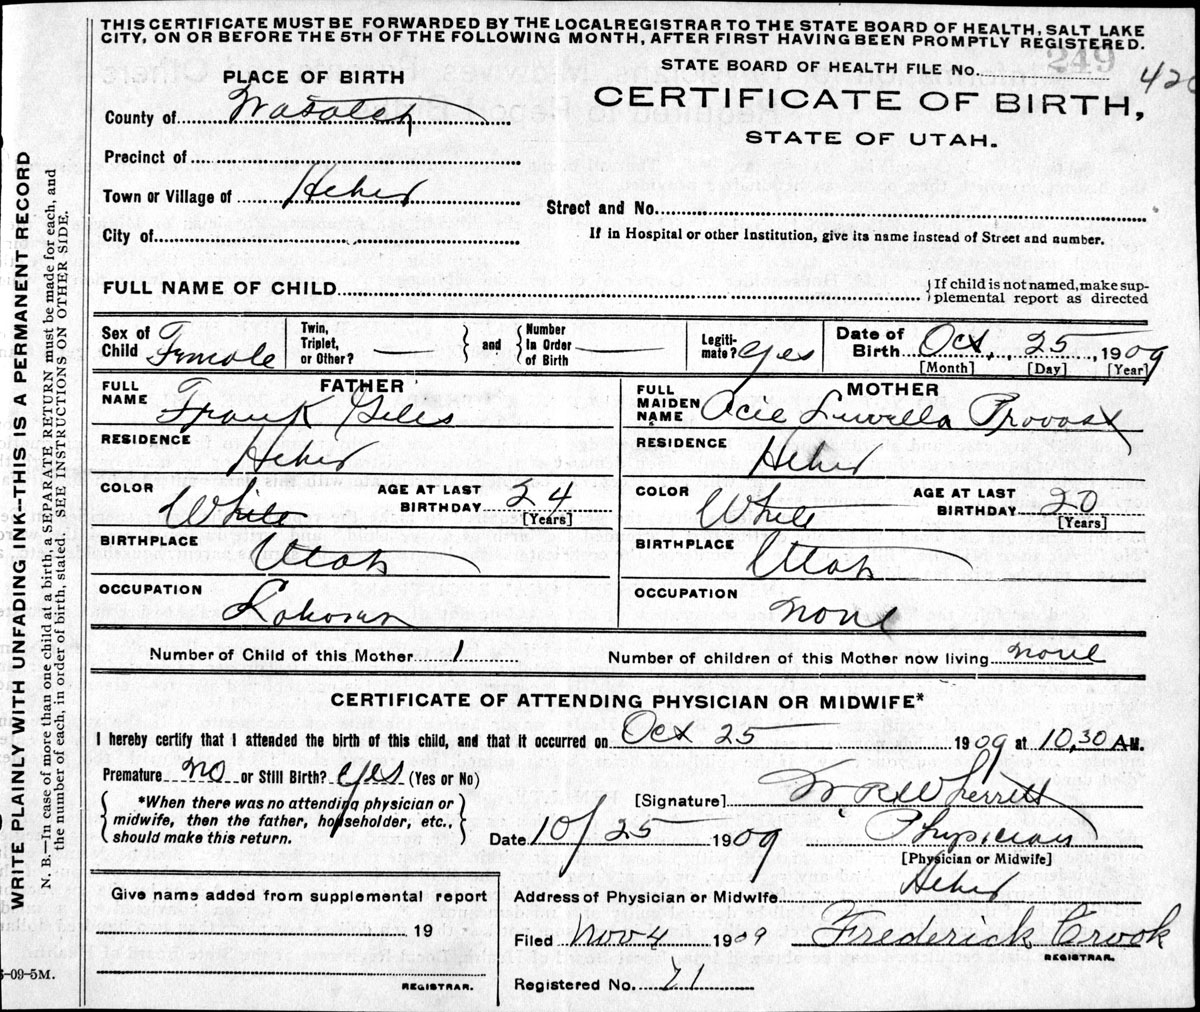 THIS CERTIFICATE MUST BE FORWARDED BY THE LOCAL REGISTRAR TO THE STATE BOARD OF HEALTH, SALT LAKE
CITY, ON OR BEFORE THE 5TH OF THE FOLLOWING MONTH, AFTER FIRST HAVING BEEN PROMPTLY REGISTERED.
PLACE OF BIRTH
STATE BOARD OF HEALTH FILE No. 249
County of Wasatch
CERTIFICATE OF BIRTH,
STATE OF UTAH.
Precinct of
Town or Village of Heber
Street and No.
City of
If in Hospital or other Institution, give its name instead of Street and number.
FULL NAME OF CHILD
If child is not named, make sup-
plemental report as directed
Sex of Child Female Twin, Triplet, or Other? — and Number In Order of Birth — Legiti-mate? yes Date of Birth Oct, 25, 1909
[Month] [Day] [Year]
FATHER
FULL NAME Frank Giles
RESIDENCE Heber
COLOR White AGE AT LAST BIRTHDAY 24 [Years]
BIRTHPLACE Utah
OCCUPATION
MOTHER
FULL MAIDEN NAME Acie Luvella Provost
RESIDENCE Heber
COLOR White AGE AT LAST BIRTHDAY 20 [Years]
BIRTHPLACE Utah
OCCUPATION none
Number of Child of this Mother 1
Number of children of this Mother now living none
CERTIFICATE OF ATTENDING PHYSICIAN OR MIDWIFE*
I hereby certify that I attended the birth of this child, and that it occurred on Oct 25 1909 at 10,30 A.M.
Premature no or Still Birth? yes (Yes or No)
*When there was no attending physician or
midwife, then the father, householder, etc.,
should make this return.
[Signature] W R Wherritt
Date 10/25 1909 Physician
[Physician or Midwife]
Address of Physician or Midwife Heber
Give name added from supplemental report
19
REGISTRAR.
Filed Nov 4 1909 Frederick Crook
REGISTRAR.
Registered No. 71
WRITE PLAINLY WITH UNFADING INK—THIS IS A PERMANENT RECORD
N. B.—In case of more than one child at a birth, a SEPARATE RETURN must be made for each, and
the number of each, in order of birth, stated. SEE INSTRUCTIONS ON OTHER SIDE.
-09-5M.